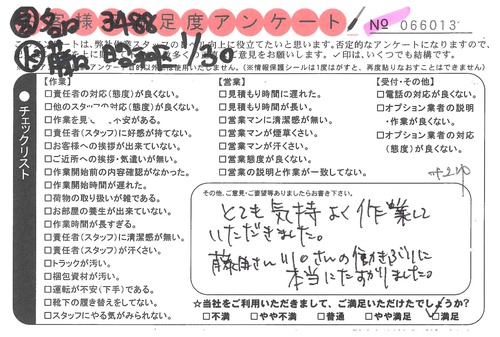 お客様満足度アンケート
№ 066013
3488
1/30
このアンケートは、弊社作業スタッフのレベル向上に役立てたいと思います。否定的なアンケートになりますので、
✓印は、いくつでも結構です。
目的以外には使用いたしません。(※情報保護シールは1度はがすと、再度貼りなおすことはできません)
チェックリスト
【作業】
□責任者の対応(態度)が良くない。
□他のスタッフの対応(態度)が良くない。
□作業を見て不安がある。
□責任者(スタッフ)に好感が持てない。
□お客様への挨拶が出来ていない。
□ご近所への挨拶・気遣いが無い。
□作業開始前の内容確認がなかった。
□作業開始時間が遅れた。
□荷物の取り扱いが雑である。
□お部屋の養生が出来ていない。
□作業時間が長すぎる。
□責任者(スタッフ)に清潔感が無い。
□責任者(スタッフ)が汗くさい。
□トラックが汚い。
□梱包資材が汚い。
□運転が不安(下手)である。
□靴下の履き替えをしてない。
□スタッフにやる気がみられない。
【営業】
□見積もり時間に遅れた。
□見積もり時間が長い。
□営業マンに清潔感が無い。
□営業マンが煙草くさい。
□営業マンが汗くさい。
□営業態度が良くない。
□営業の説明と作業が一致してない。
【受付・その他】
□電話の対応が良くない。
□オプション業者の説明
・作業が良くない。
□オプション業者の対応
(態度)が良くない。
その他、ご意見・ご要望等ありましたらお書き下さい。
とても気持よく作業して
いただきました。
藤田さんの働きぶりに
本当にたすかりました。
☆当社をご利用いただきまして、ご満足いただけたでしょうか?
□不満 □やや不満 □普通 □やや満足 ☑満足